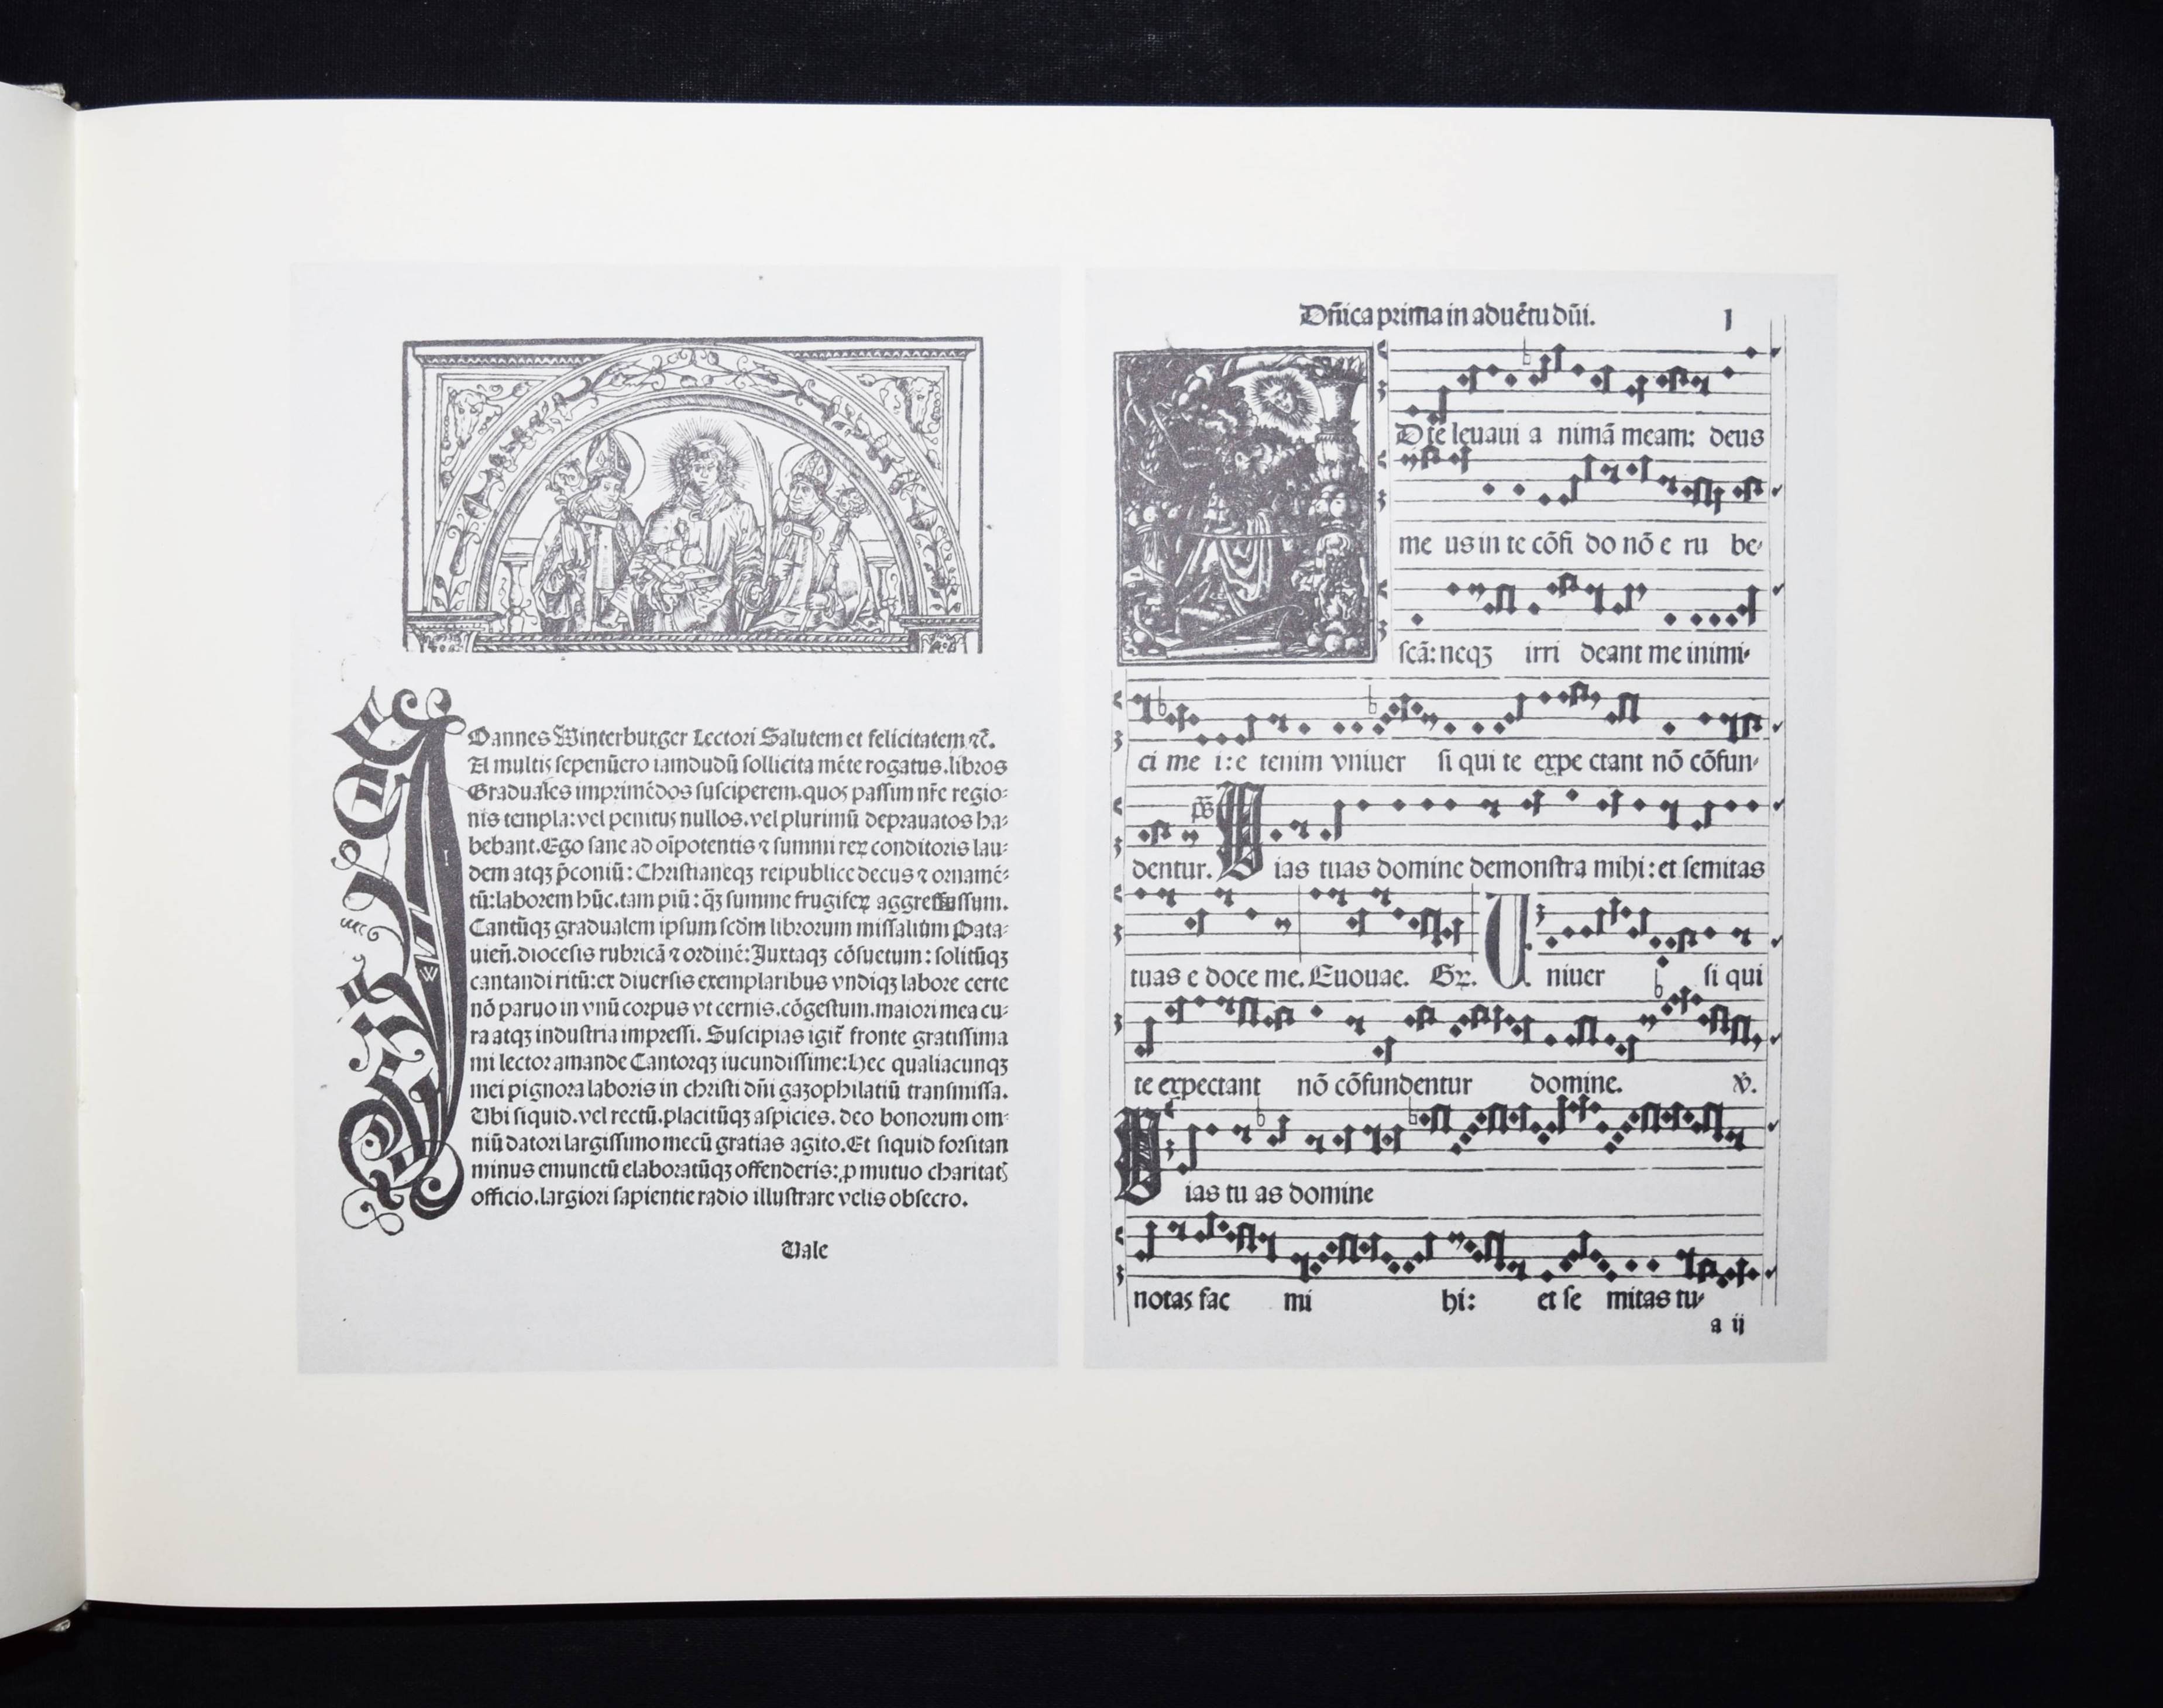 Joannes Winterburger Lectori Salutem et felicitatem ⁊c̃.
A multis sepenũero iamdudũ sollicita mẽte rogatus.libros
Graduales imprimẽdos susciperem.quos passim nr̃e regio⸗
nis templa:vel penitus nullos.vel plurimũ deprauatos ha⸗
bebant.Ego sane ad oĩpotentis ⁊ summi reꝝ conditoris lau⸗
dem atqꝫ p̃coniũ: Christianeqꝫ reipublice decus ⁊ ornamẽ⸗
tũ:laborem hũc.tam piũ: q̃ꝫ summe frugiferꝝ aggressussum.
Cantũqꝫ gradualem ipsum scd̃m librorum missalium Pata⸗
uieñ.diocesis rubricã ⁊ ordinẽ: Juxtaqꝫ cõsuetum: solitũqꝫ
cantandi ritũ:ex diuersis exemplaribus vndiqꝫ labore certe
nõ paruo in vnũ corpus vt cernis.cõgestum.maiori mea cu⸗
ra atqꝫ industria impressi. Suscipias igit̃ fronte gratissima
mi lector amande Cantorqꝫ iucundissime:hec qualiacunqꝫ
mei pignora laboris in christi dñi gazophilatiũ transmissa.
Ubi siquid.vel rectũ.placitũqꝫ aspicies. deo bonorum om⸗
niũ datori largissimo mecũ gratias agito.Et siquid forsitan
minus emunctũ elaboratũqꝫ offenderis: ꝓ mutuo charitatꝭ
officio.largiori sapientie radio illustrare velis obsecro.
Vale
Dñica prima in aduẽtu dñi. 1
D te leuaui a nimã meam: deus
me us in te cõfi do nõ e ru be⸗
scã: neqꝫ irri deant me inimi⸗
ci me i:e tenim vniuer si qui te expe ctant nõ cõfun⸗
p̃s
dentur. Vias tuas domine demonstra mihi: et semitas
tuas e doce me. Euouae. Gꝝ. Uniuer si qui
te expectant nõ cõfundentur domine. ℣.
Vias tu as domine
notas fac mi hi: et se mitas tu⸗
a ij